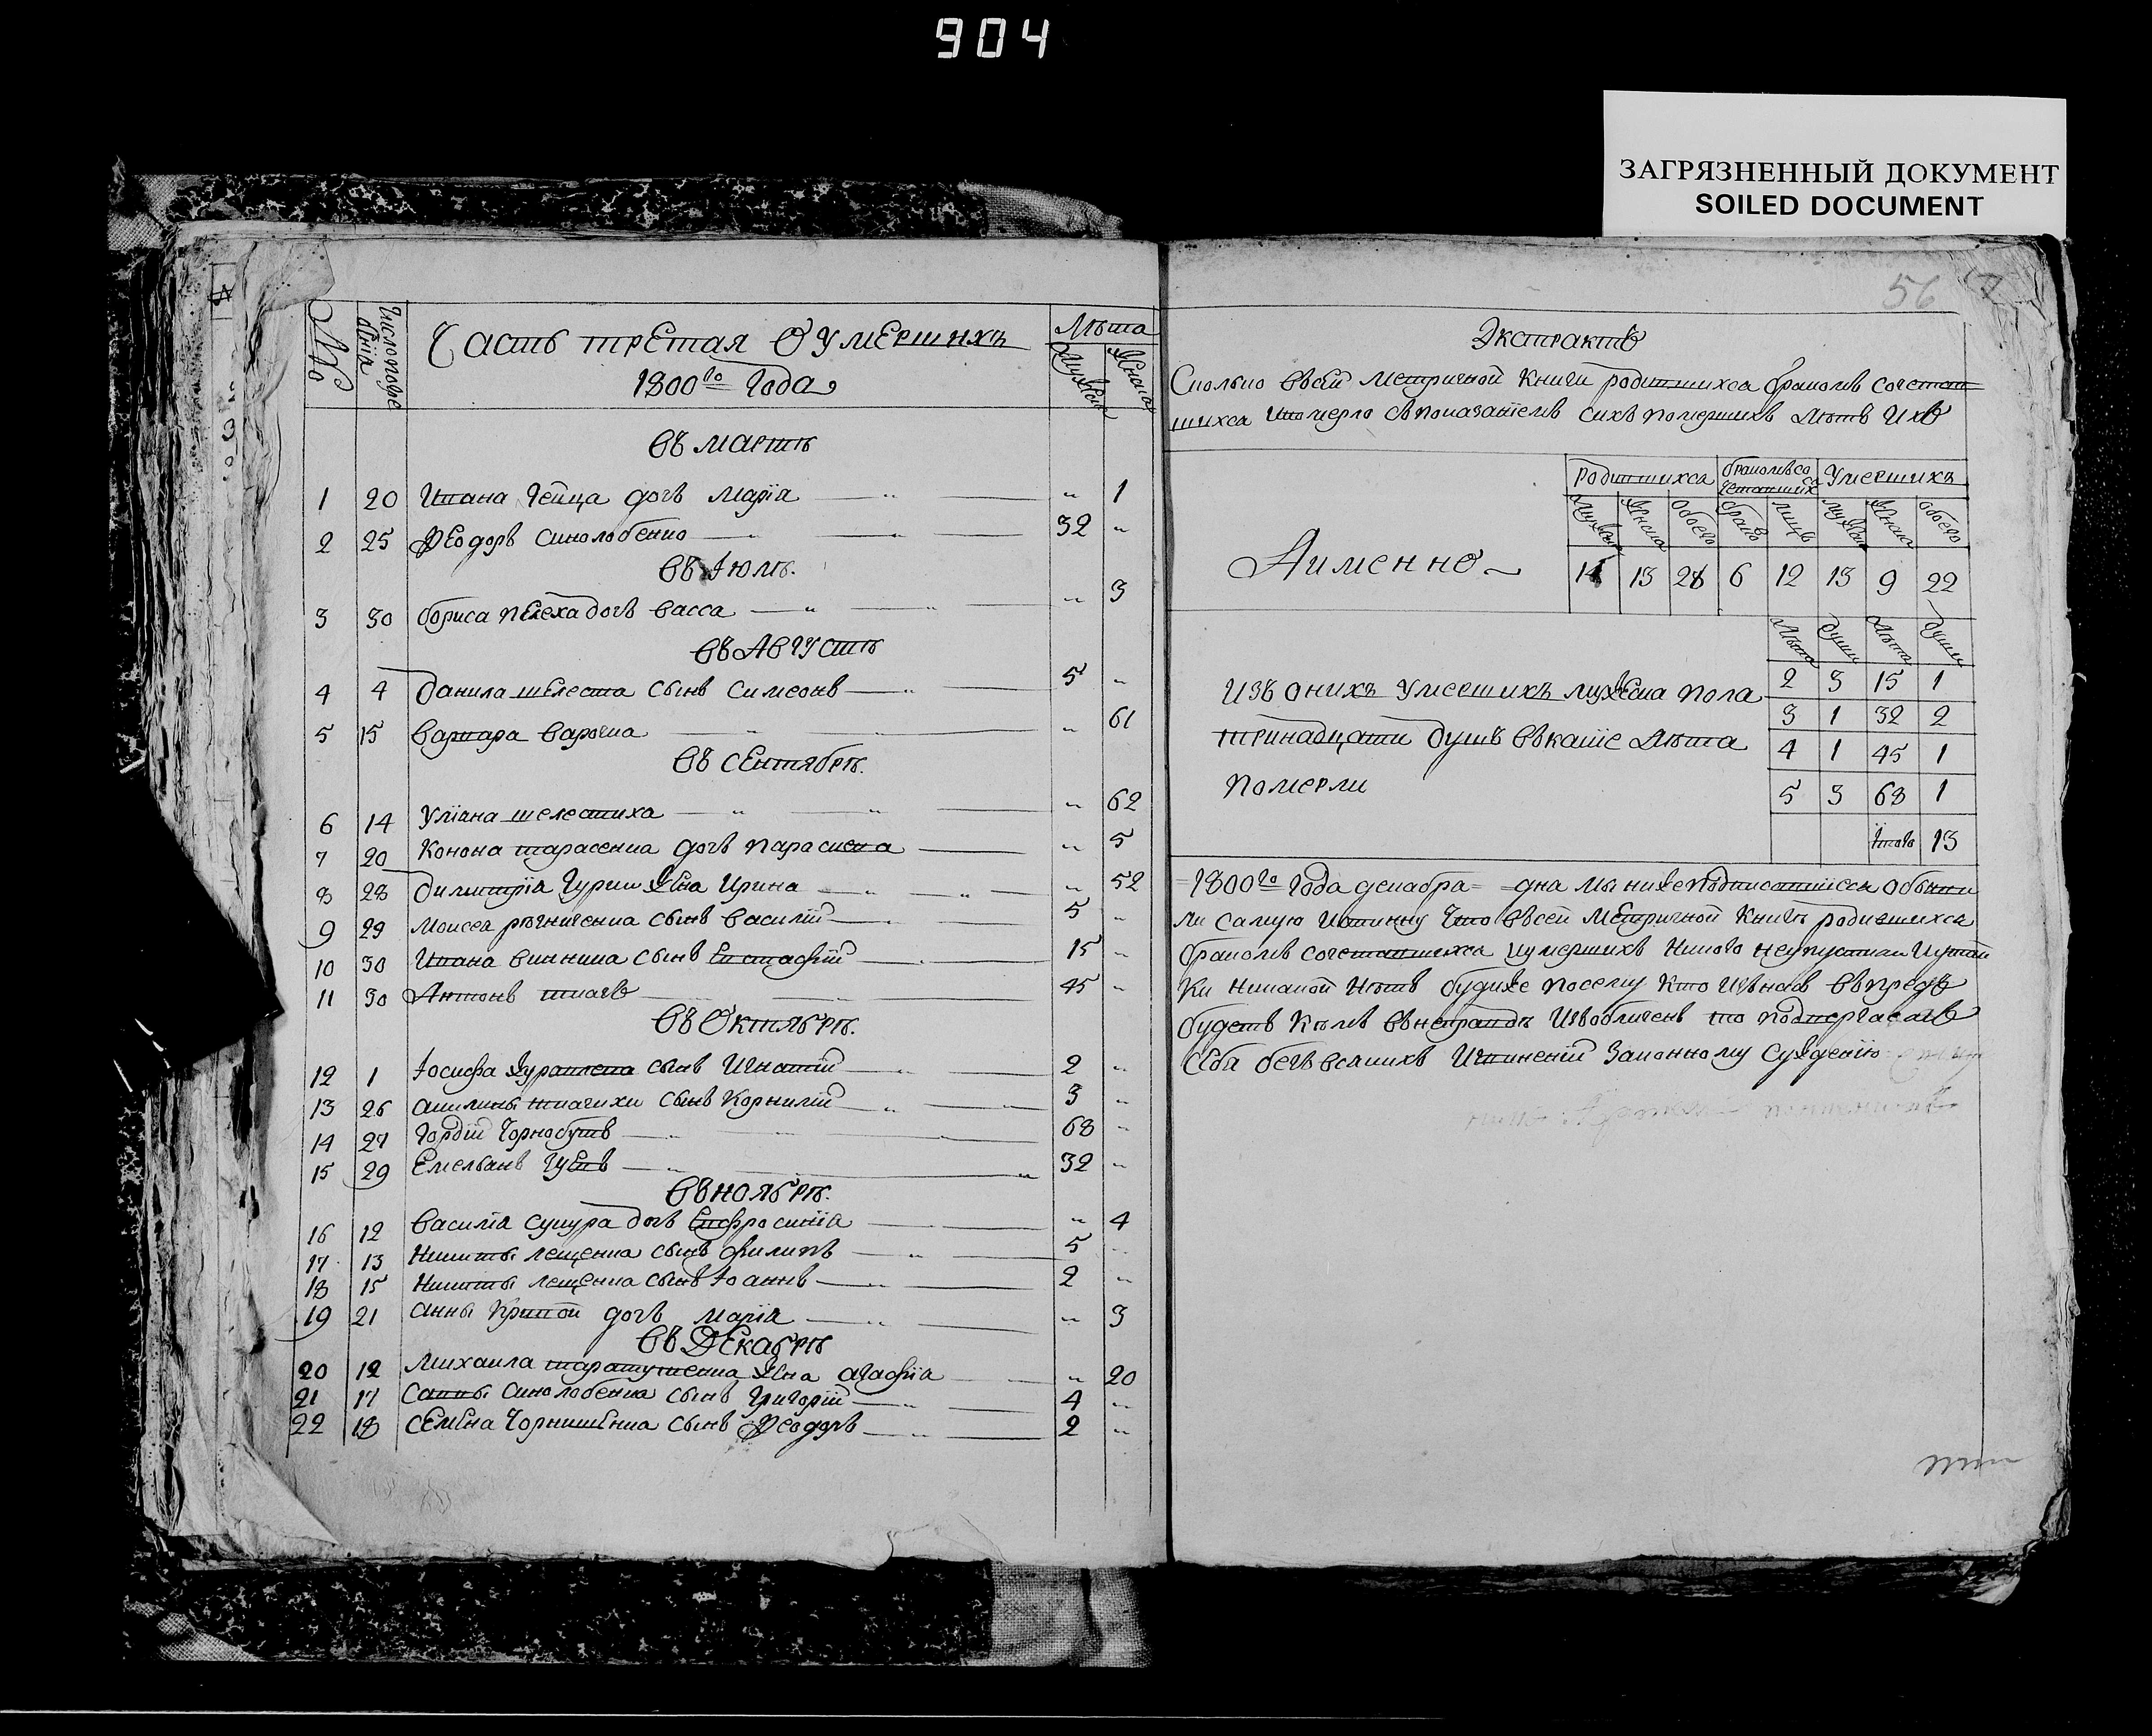 904
ЗАГРЯЗНЕННЫЙ ДОКУМЕНТ
SOILED DOCUMENT
56
№ Число Часть третая О Умершихъ Лѣта
1800го Года Мужска Женска
Въ мартѣ
1 20 Ивана Гейца дочъ Марїя „ 1
2 25 Феодоръ Сиволобенко 32 „
Въ Июлѣ.
3 30 бориса пелеха дочъ Васса „ 3
Въ Августѣ
4 4 Данила шелеста сынъ Симеонъ 5 „
5 15 Варвара „ 61
Въ Сентябрѣ.
6 14 Улїана шелестиха „ 62
7 20 Конона тарасенка дочъ Параскева „ 5
8 28 Димитрїа Гурии жена Ирина „ 52
9 29 Моисеа рѣзниченка сынъ Василїй 5 „
10 30 Ивана сынъ Евстафїй 15 „
11 30 Антонъ ткачъ 45 „
Въ Октябрѣ.
12 1 Іосифа журавлева сынъ Игнатїй 2 „
13 26 Акилины ткачихи сынъ Корнилїй 3 „
14 27 Гордїй Чорнобувъ 68 „
15 29 Емельанъ 32 „
Въ ноябрѣ.
16 12 Василїа сукура дочъ Евфросинїа „ 4
17 13 Никиты лещенка сынъ Филипъ 5 „
18 15 Никиты лещенка сынъ Іоаннъ 2 „
19 21 Анны Кривой дочъ Марїа „ 3
Въ Декабрѣ
20 12 Михаила таратутенка жена Агафїа „ 20
21 17 Саввы Сиволобенка сынъ Григорїй 4 „
22 18 Семена Чорнишенка сынъ Феодоръ 2 „
Экстрактъ
Сколько Всей Метричной Книги родившихса бракомъ сочетав
шихса Ипомерло Спонозанїемъ сихъ помершихъ Лѣтъ Ихъ
родившихса бракомъ со Умершихъ
четавшихса
Мужска Женска Обоего браковъ лицъ мужска Женска обоего
Аименно 14 13 28 6 12 13 9 22
Лѣта души Лѣта души
Изъ онихъ умершихъ мужеска пола
тринадцати душъ Въкакїе Лѣта
померли
2 3 15 1
3 1 32 2
4 1 45 1
5 3 68 1
Итого 13
1800го Года декабра дна мы нижеподписавшїеса Обьяви
ли самую Истинну Что Всей Метричной Книгѣ родившихса
бракомъ сочетавшихса иумершихъ Никого неупустили Иутай
ки никакой Нѣтъ будиже посему Кто Изънасъ Впредъ
будетъ Кѣмъ Внеправдѣ Изъобличенъ то подвергаемъ
Себа безъ всакихъ Извиненїй Законному Сужденїю